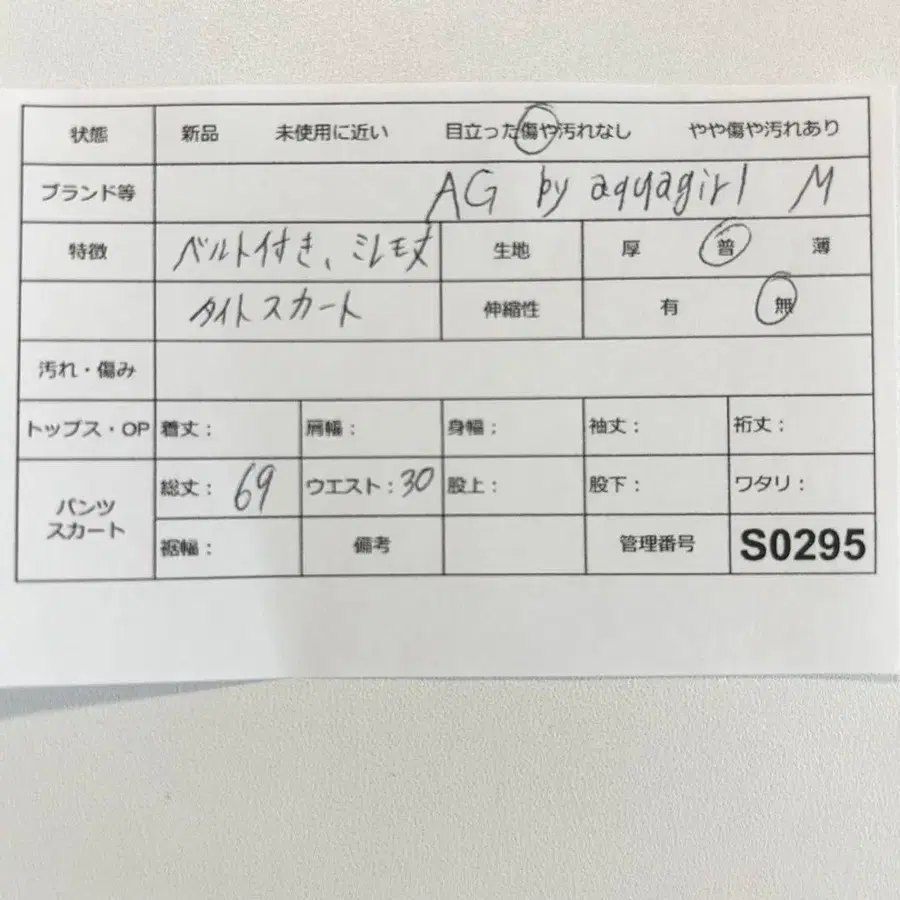 状態 新品 未使用に近い 目立った傷や汚れなし やや傷や汚れあり
ブランド等 AG by aquagirl M
特徴 ベルト付き、ミレモ丈 生地 厚 普 薄
タイトスカート 伸縮性 有 無
汚れ・傷み
トップス・OP 着丈: 肩幅: 身幅: 袖丈: 裄丈:
パンツ スカート 総丈: 69 ウエスト:30 股上: 股下: ワタリ:
裾幅: 備考 管理番号 S0295